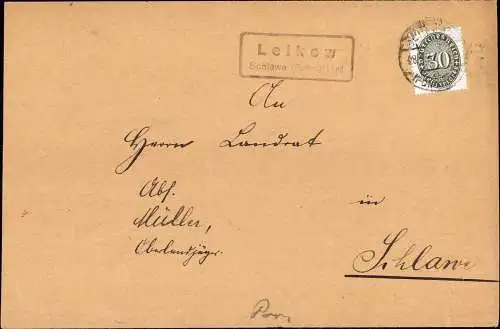 Leikow
Schlawe
30
An
Herrn Landrat
in
Schlawe
Abs.
Müller,
Oberlandjäger.